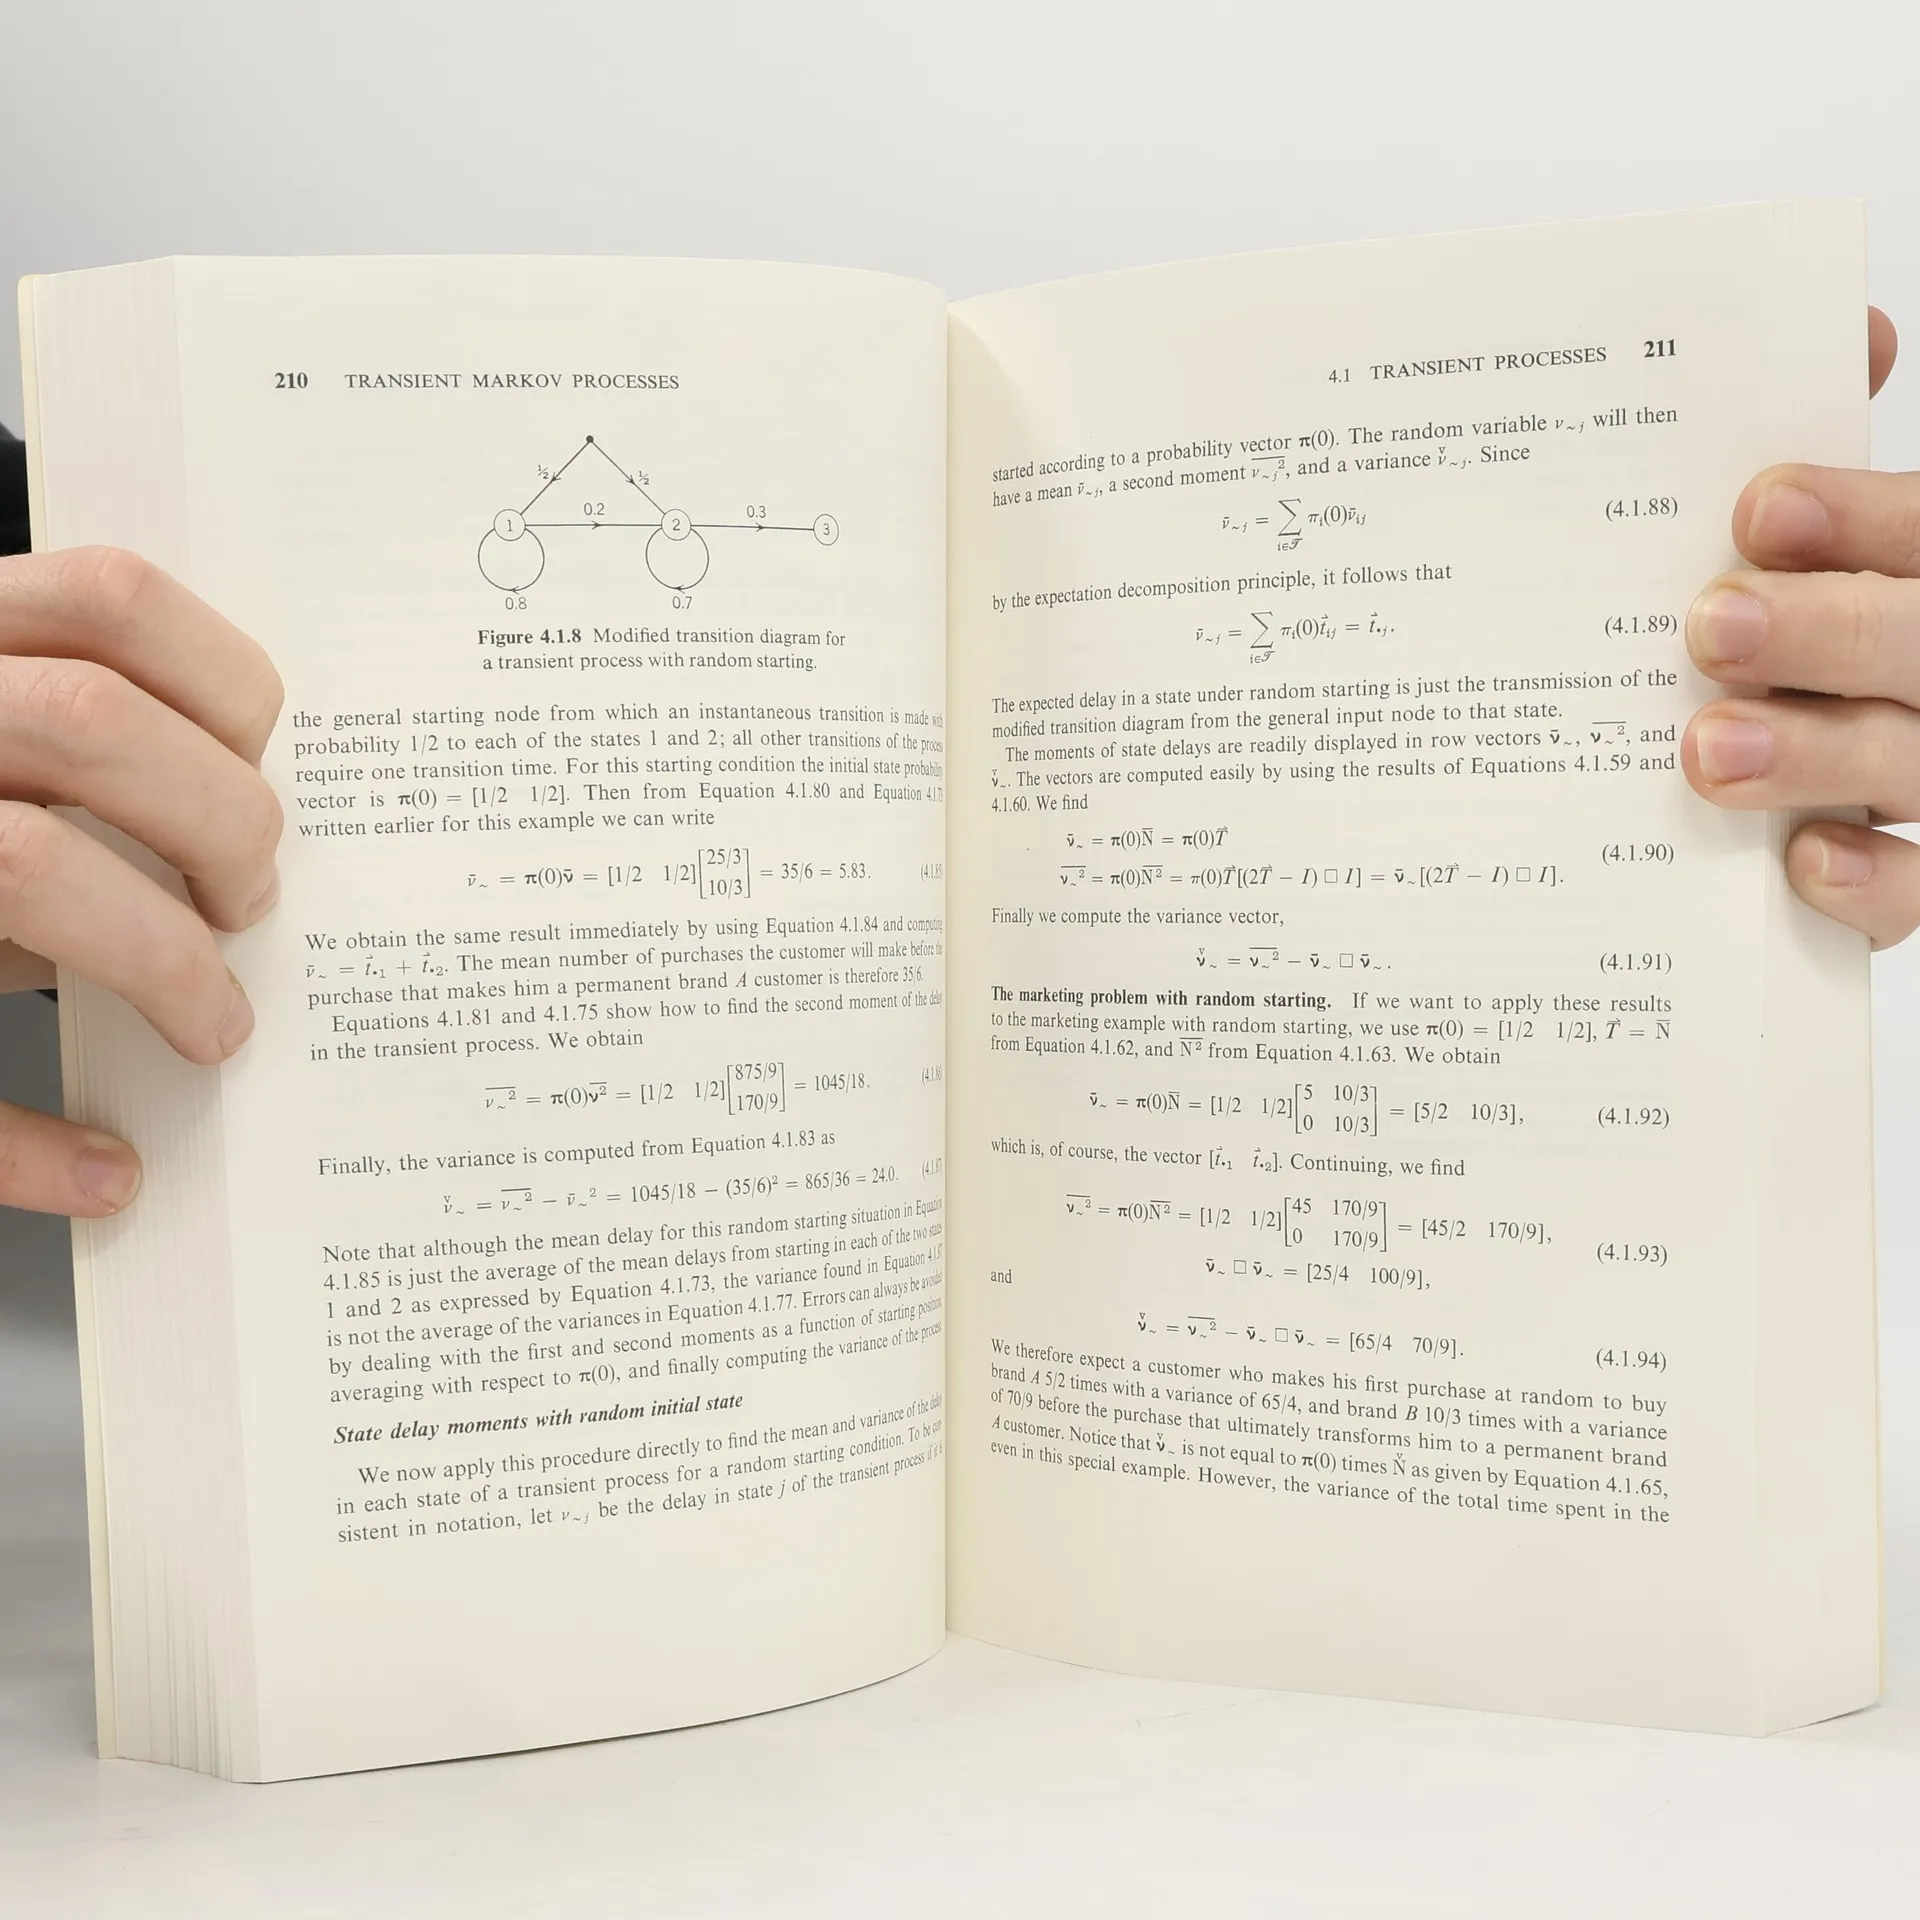 210 TRANSIENT MARKOV PROCESSES
½ ½
0.2 0.3
1 2 3
0.8 0.7
Figure 4.1.8 Modified transition diagram for
a transient process with random starting.
the general starting node from which an instantaneous transition is made with
probability 1/2 to each of the states 1 and 2; all other transitions of the process
require one transition time. For this starting condition the initial state probability
vector is π(0) = [1/2 1/2]. Then from Equation 4.1.80 and Equation
written earlier for this example we can write
ν̄~ = π(0)ν̄ = [1/2 1/2] [25/3 10/3] = 35/6 = 5.83. (4.1.85
We obtain the same result immediately by using Equation 4.1.84 and computing
ν̄~ = t⃗•1 + t⃗•2. The mean number of purchases the customer will make before the
purchase that makes him a permanent brand A customer is therefore 35/6.
Equations 4.1.81 and 4.1.75 show how to find the second moment of the delay
in the transient process. We obtain
ν~² = π(0)ν² = [1/2 1/2] [875/9 170/9] = 1045/18. (4.1.86
Finally, the variance is computed from Equation 4.1.83 as
ν̌~ = ν~² − ν̄~² = 1045/18 − (35/6)² = 865/36 = 24.0. (4.1.87
Note that although the mean delay for this random starting situation in Equation
4.1.85 is just the average of the mean delays from starting in each of the two states
1 and 2 as expressed by Equation 4.1.73, the variance found in Equation 4.1.87
is not the average of the variances in Equation 4.1.77. Errors can always be avoided
by dealing with the first and second moments as a function of starting position
averaging with respect to π(0), and finally computing the variance of the process
State delay moments with random initial state
We now apply this procedure directly to find the mean and variance of the delay
in each state of a transient process for a random starting condition. To be con-
sistent in notation, let ν~j be the delay in state j of the transient process if it is
4.1 TRANSIENT PROCESSES 211
started according to a probability vector π(0). The random variable ν~j will then
have a mean ν̄~j, a second moment ν~j², and a variance ν̌~j. Since
ν̄~j = ∑ i∈𝒯 πi(0)ν̄ij (4.1.88)
by the expectation decomposition principle, it follows that
ν̄~j = ∑ i∈𝒯 πi(0)t⃗ij = t⃗•j. (4.1.89)
The expected delay in a state under random starting is just the transmission of the
modified transition diagram from the general input node to that state.
The moments of state delays are readily displayed in row vectors ν̄~, ν~², and
ν̌~. The vectors are computed easily by using the results of Equations 4.1.59 and
4.1.60. We find
ν̄~ = π(0)N̄ = π(0)T⃗
ν~² = π(0)N² = π(0)T⃗[(2T⃗ − I) □ I] = ν̄~[(2T⃗ − I) □ I]. (4.1.90)
Finally we compute the variance vector,
ν̌~ = ν~² − ν̄~ □ ν̄~. (4.1.91)
The marketing problem with random starting. If we want to apply these results
to the marketing example with random starting, we use π(0) = [1/2 1/2], T⃗ = N̄
from Equation 4.1.62, and N² from Equation 4.1.63. We obtain
ν̄~ = π(0)N̄ = [1/2 1/2] [5 10/3 0 10/3] = [5/2 10/3], (4.1.92)
which is, of course, the vector [t⃗•1 t⃗•2]. Continuing, we find
ν~² = π(0)N² = [1/2 1/2] [45 170/9 0 170/9] = [45/2 170/9], (4.1.93)
ν̄~ □ ν̄~ = [25/4 100/9],
and
ν̌~ = ν~² − ν̄~ □ ν̄~ = [65/4 70/9]. (4.1.94)
We therefore expect a customer who makes his first purchase at random to buy
brand A 5/2 times with a variance of 65/4, and brand B 10/3 times with a variance
of 70/9 before the purchase that ultimately transforms him to a permanent brand
A customer. Notice that ν̌~ is not equal to π(0) times Ň as given by Equation 4.1.65,
even in this special example. However, the variance of the total time spent in the